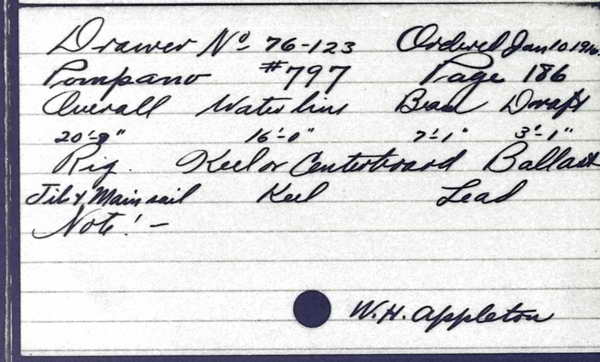 Drawer No. 76-123 Ordered Jan 10. 1916.
Pompano #797 Page 186
Overall Waterline Beam Draft
20'-9" 16'-0" 7'-1" 3'-1"
Rig. Keel or Centerboard Ballast
Jib & Mainsail Keel Lead
Note! -
W. H. Appleton